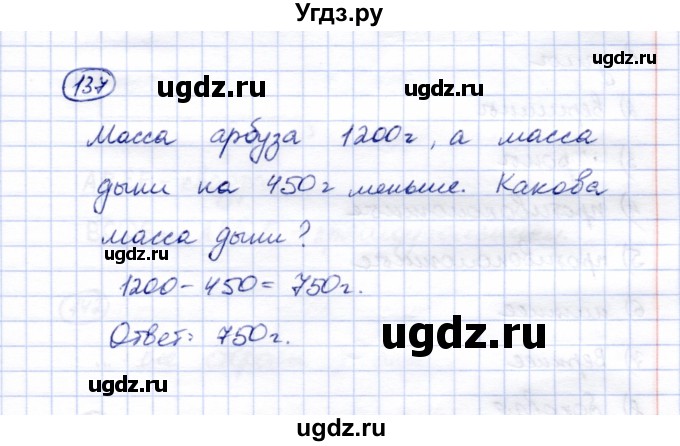 Угдз.ру
ugdz.ru
137
ugdz.ru
ugdz.ru
Масса арбуза 1200г, а масса
дыни на 450г меньше. Какова
масса дыни?
ugdz.ru
1200-450= 750г.
Ответ: 750г.
ugdz.ru
ugdz.ru
ugdz.ru